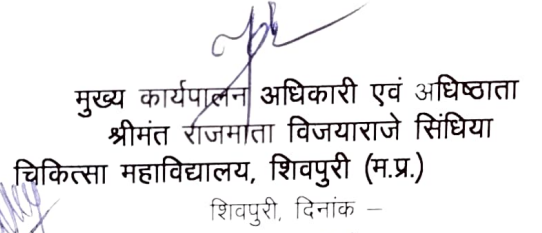 मुख्य कार्यपालन अधिकारी एवं अधिष्ठाता
श्रीमंत राजमाता विजयाराजे सिंधिया
चिकित्सा महाविद्यालय, शिवपुरी (म.प्र.)
शिवपुरी, दिनांक –